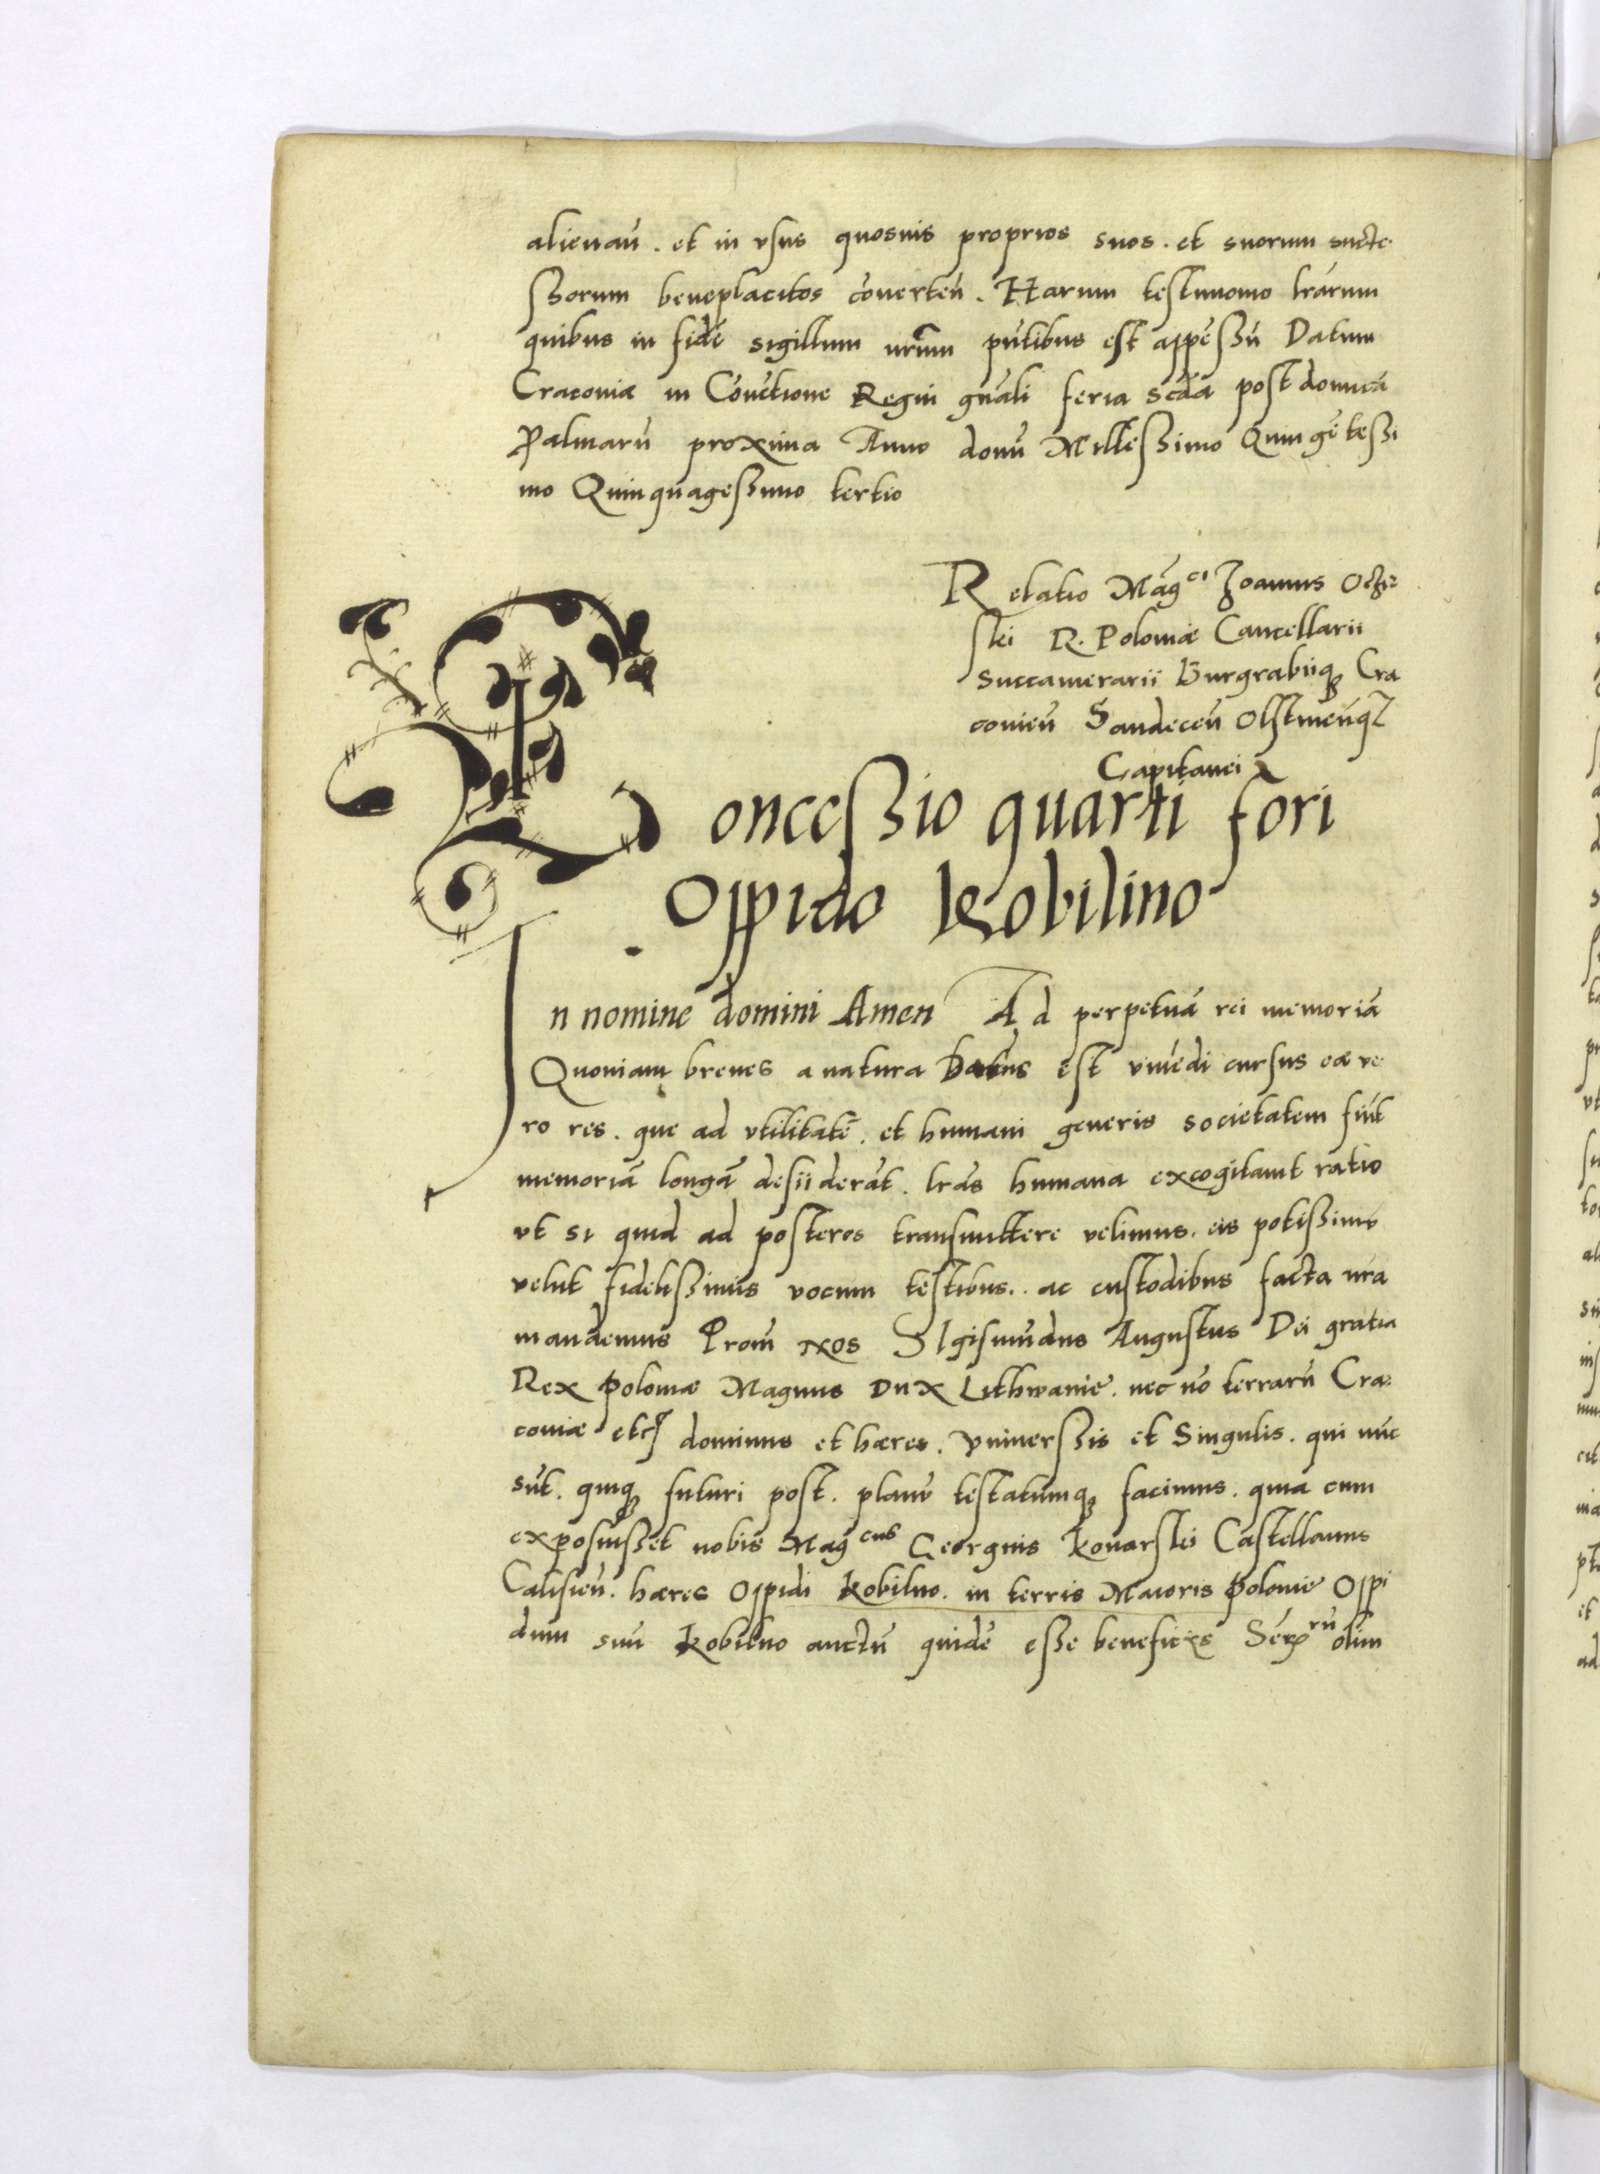 alienań . et in vsus quosuis proprios suos . et suorum succe
ssorum beneplacitos cōuerteń . Harum testimonio lrārum
quibus in fidē sigillum nrūm pn̄tibus est appēssū Datum
Cracouiæ in Cōuētione Regni gn̄ali feria scd̄a post domicā
Palmarū proxima Anno domī Millessimo Quingētessi
mo Quinquagessimo tertio
Relatio Mag̃ci Joannis Oczie
ski R. Poloniæ Cancellarii
Succamerarii Burgrabiiq̃ Cra
couień Sandeceń Olstineńq̃
Capitanei
Concessio quarti fori
Oppido Kobilino
In nomine domini Amen Ad perpetuā rei memoriā
Quoniam breues a natura Datus est viuēdi cursus eæ ve
ro res . que ad vtilitatē . et humani generis societatem fiūt
memoriā longā desiiderāt . lrās humana excogitauit ratio
vt si quid ad posteros transmittere velimus . eis potissimū
velut fidelissimis vocum testibus . . ac custodibus facta nrā
mandemus Proīn nos SIgismūdus Augustus Dei gratia
Rex Poloniæ Magnus Dux Lithwaniæ . nec nō terrarū Cra
couiæ etc̃ dominus et hæres . Vniuerssis et Singulis . qui nūc
sūt . quiq̃ futuri post . planū testatumq̃ facimus . quia cum
exposuisset nobis Mag̃cus Georgius Konarski Castellanus
Calisień . hæres Oppidi Kobilino . in terris Maioris Poloniæ Oppi
dum suū Kobilino auctū quidē esse beneficiis Sēr̃rū olim